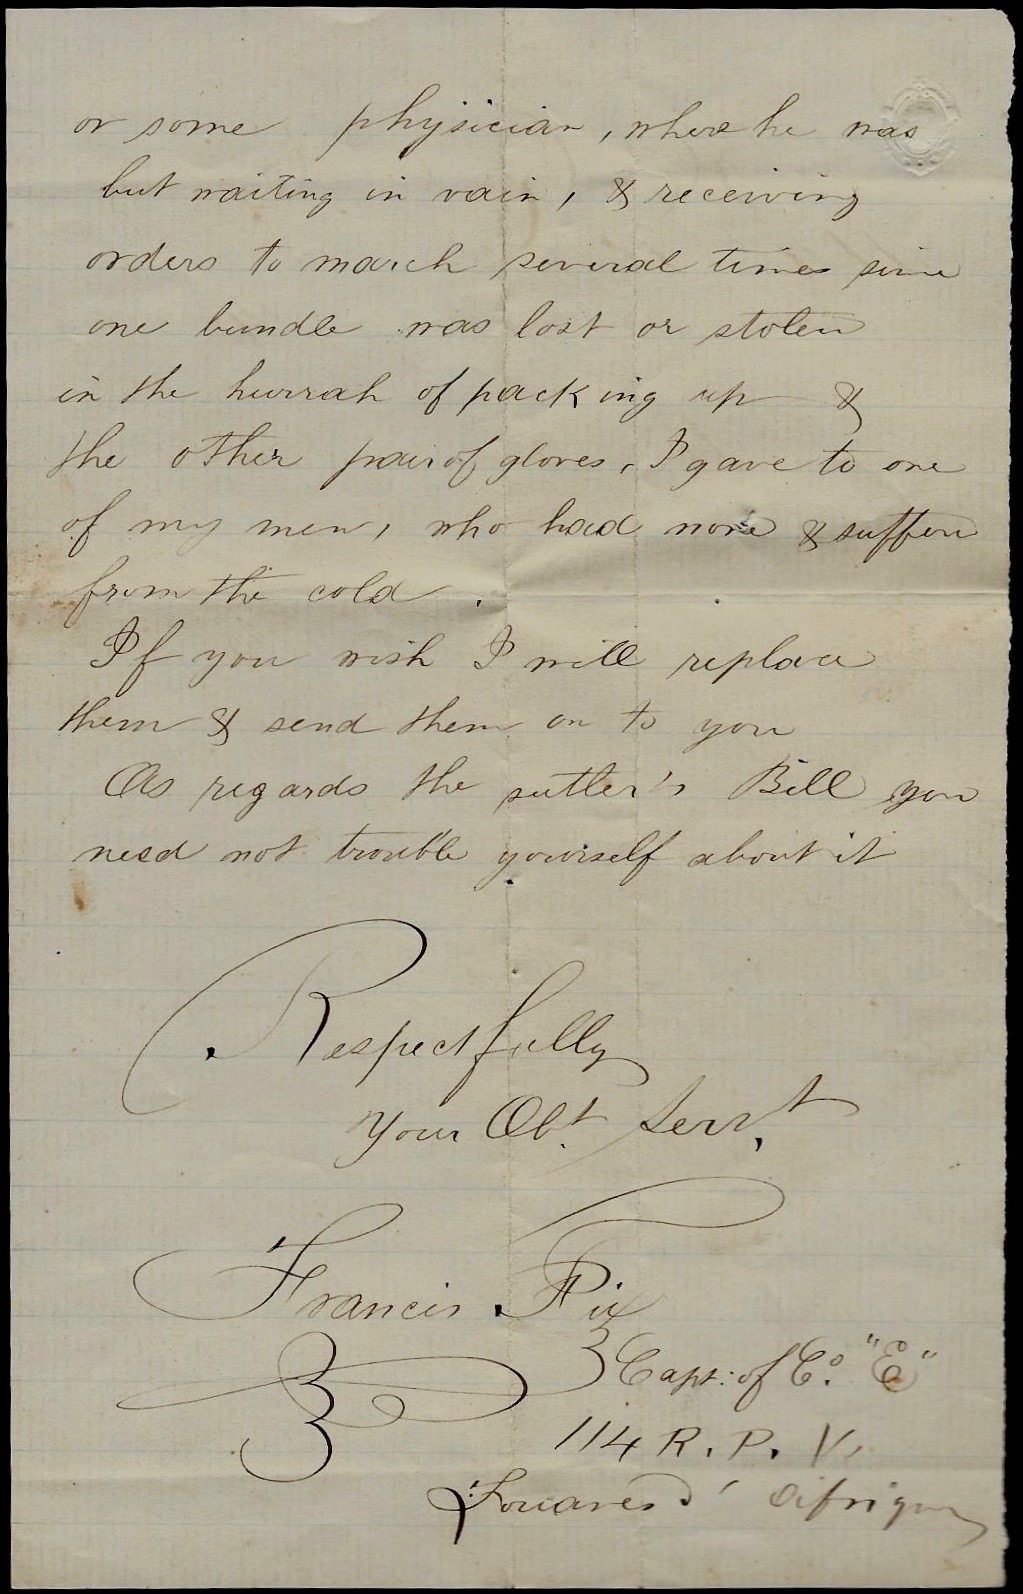 or some physician, where he was
but waiting in vain, & receiving
orders to march several times since
one bundle was lost or stolen
in the hurrah of packing up &
the other pair of gloves, I gave to one
of my men, who had none & suffered
from the cold.
If you wish I will replace
them & send them on to you
As regards the sutler's Bill you
need not trouble yourself about it
Respectfully
Your Obt. Servt.
Francis Fix
Capt: of Co. "E"
114 R. P. V.
Zouaves d'Afrique